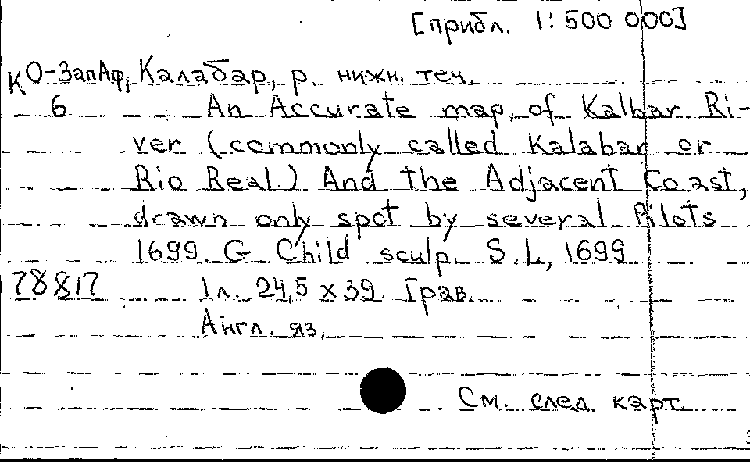 [прибл. 1:500 000]
К О-ЗапАф, Калабар, р. нижн. теч.
6 An Accurate map of Kalbar Ri-
ver (commonly called Kalabar or
Rio Real) And the Adjacent Coast,
drawn only spot by several Pilots
1699. G Child sculp. S.L, 1699
78817 1 л. 24,5 x 39 Грав.
Англ. яз.
См. след. карт.